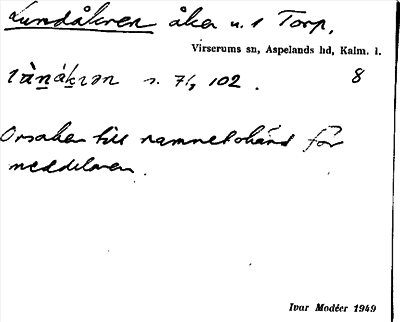 Lundåkren åker u. 1 Torp.
Virserums sn, Aspelands hd, Kalm. l.
s. 7/, 102. 8
Orsaken till namnet okänd för
meddelaren.
Ivar Modéer 1949